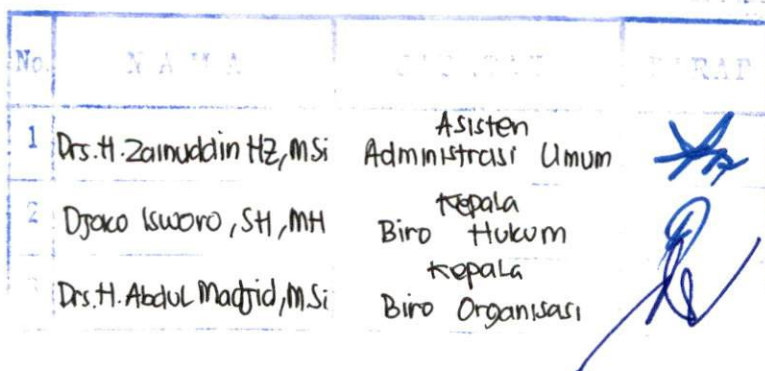 No. N A M A JABATAN PARAF
1 Drs. H. Zainuddin HZ, MSi Asisten Administrasi Umum
2 Djoko Isworo, SH, MH Kepala Biro Hukum
3 Drs. H. Abdul Madjid, M.Si Kepala Biro Organisasi